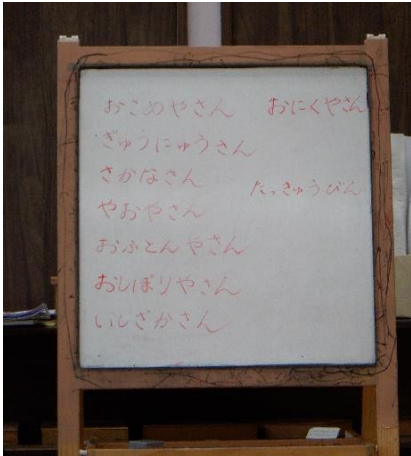 おこめやさん
ぎゅうにゅうさん
さかなさん
やおやさん
おふとんやさん
おしぼりやさん
いしざかさん
おにくやさん
たっきゅうびん